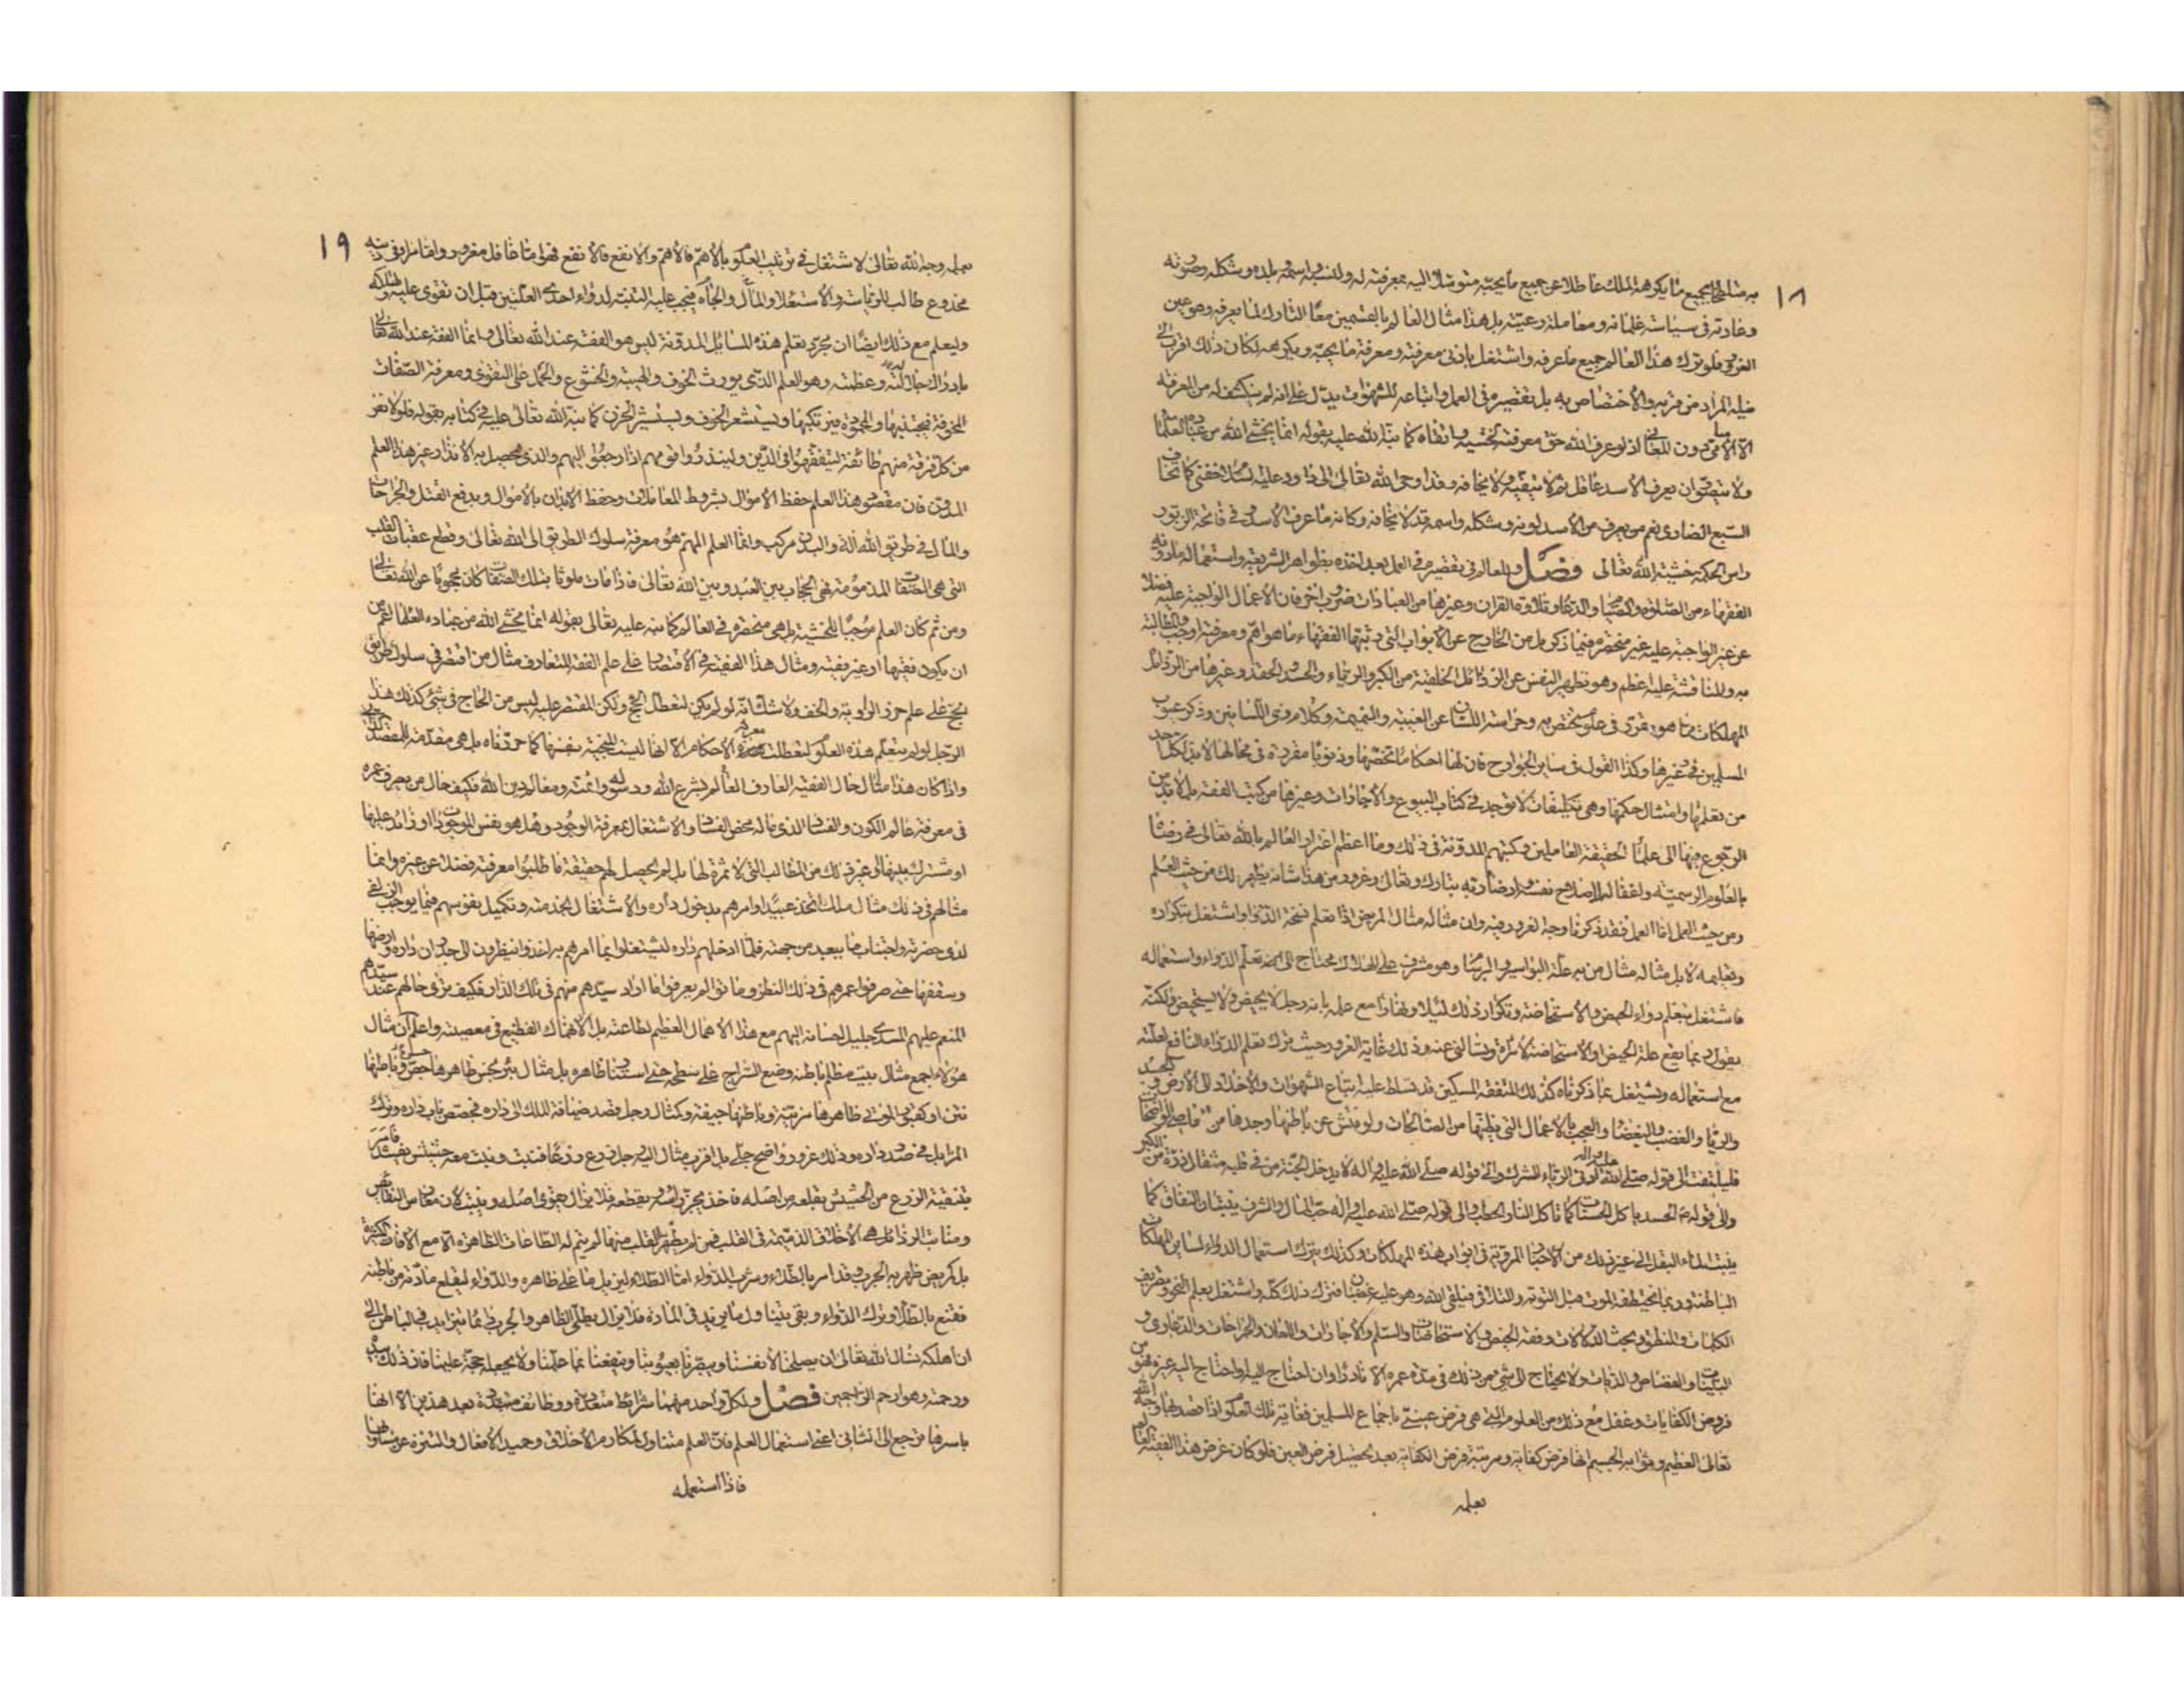 ١٨
به متلطخا بجميع ما يكرهه الملك عاطلا عن جميع ما يحبه متوسلا اليه بمعرفته له ولنسبه واسمه وبلده وشكله وصورته
وعادته في سياسة غلمانه ومعاملة رعيته بل هذا مثال العالم بالقسمين معا التارك لما يعرفه وهو عين
الغرور فلو ترك هذا العالم جميع ما عرفه واشتغل بادنى معرفته ومعرفة ما يحبه ويكرهه لكان ذلك اقرب الى
نيله المراد من قربه والاختصاص به بل تقصيره في العمل واتباعه للشهوات يدل على انه لم ينكشف له من المعرفة
الا الاسامى دون المعاني اذ لو عرف الله حق معرفته لخشيه واتقاه كما نبه الله عليه بقوله انما يخشى الله من عباده العلماء
ولا يتصور ان يعرف الاسد عاقل ثم لا يتقيه ولا يخافه وقد اوحى الله تعالى الى داود عليه السلام خفنى كما تخاف
السبع الضارى نعم من يعرف من الاسد لونه وشكله واسمه قد لا يخافه وكانه ما عرف الاسد وفي فاتحة الزبور
راس الحكمة خشية الله تعالى فصل وللعالم في تقصيره في العمل بعد اخذه بظواهر الشريعة واستعماله ما دونه
الفقهاء من الصلوة والصيام والدعاء وتلاوة القران وغيرها من العبادات ضروب اخر فان الاعمال الواجبة عليه فضلا
عن غير الواجبة عليه غير منحصرة فيما ذكر بل من الخارج عن الابواب التي رتبها الفقهاء ما هو اهم ومعرفته اوجب والمطالبة
به والمناقشة عليه اعظم وهو تطهير النفس عن الرذائل الخلقية من الكبر والرياء والحسد والحقد وغيرها من الرذائل
المهلكات مما هو مقرر في علوم تختص به وحراسة اللسان عن الغيبة والنميمة وكلام ذى اللسانين وذكر عيوب
المسلمين وغيرها وكذا القول في ساير الجوارح فان لها احكاما تخصها وذنوبا مقررة في محالها لا بد لكل احد
من تعلمها وامتثال حكمها وهي تكليفات لا توجد في كتاب البيوع والاجارات وغيرها من كتب الفقه بل لا بد من
الرجوع فيها الى علماء الحقيقة العاملين وكتبهم المدونة في ذلك وما اعظم اغترار العالم بالله تعالى في رضاه
بالعلوم الرسمية واغفاله اصلاح نفسه وارضاء ربه تبارك وتعالى وغرور من هذا شانه يظهر لك من حيث العلم
ومن حيث العمل اما العمل فقد ذكرنا وجه الغرور فيه وان مثاله مثال المريض اذا تعلم نسخة الدواء واشتغل بتكراره
وتعليمه لا بل مثاله مثال من به علة البواسير والبرسام وهو مشرف على الهلاك محتاج الى تعلم الدواء واستعماله
فاشتغل بتعلم دواء الحيض والاستحاضة وتكرار ذلك ليلا ونهارا مع علمه بانه رجل لا يحيض ولا يستحيض ولكنه
يقول ربما يقع علة الحيض او الاستحاضة لامراة ويسالنى عنه وذلك غاية الغرور حيث ترك تعلم الدواء النافع لعلته
مع استعماله ويشتغل بما ذكرناه كذلك المتفقه المسكين قد تسلط عليه اتباع الشهوات والاخلاد الى الارض والحسد
والرياء والغضب والبغضاء والعجب بالاعمال التي يظنها من الصالحات ولو فتش عن باطنها وجدها من المعاصى الواضحات
فليلتفت الى قوله صلى الله عليه واله ادنى الرياء الشرك والى قوله صلى الله عليه واله لا يدخل الجنة من في قلبه مثقال ذرة من الكبر
والى قوله ص الحسد ياكل الحسنات كما تاكل النار الحطب والى قوله صلى الله عليه واله حب المال والشرف ينبتان النفاق كما
ينبت الماء البقل الى غير ذلك من الاخبار المروية في ابواب هذه المهلكات وكذلك يترك استعمال الدواء لساير المهلكات
الباطنة وربما يختطفه الموت قبل التوبة والتلافى فيلقى الله وهو عليه غضبان فترك ذلك كله واشتغل بعلم النحو وتصريف
الكلمات والمنطق وبحث الدلالات وفقه الحيض والاستحاضات والسلم والاجارات واللعان والجراحات والدعاوى و
البينات والقصاص والديات ولا يحتاج الى شئ من ذلك في مدة عمره الا نادرا وان احتاج اليه او احتاج اليه غيره فهو من
فروض الكفايات وغفل مع ذلك من العلوم التي هي فرض عينى باجماع المسلمين فغاية تلك العلوم اذا قصد بها وجه الله
تعالى العظيم وثوابه الجسيم انها فرض كفاية ومرتبة فرض الكفاية بعد تحصيل فرض العين فلو كان غرض هذا الفقيه العالم
بعلمه
١٩
بعلمه وجه الله تعالى لاشتغل في ترتيب العلوم بالاهم فالاهم والانفع فالانفع فهو اما غافل مغرور واما مراء في دينه
مخدوع طالب للرياسة والاستعلاء والمال والجاه فيجب عليه التنبه لدواء احدى العلتين قبل ان تقوى عليه وتهلكه
وليعلم مع ذلك ايضا ان مجرد تعلم هذه المسائل المدونة ليس هو الفقه عند الله تعالى وانما الفقه عند الله تعالى
بادراك جلاله وعظمته وهو العلم الذى يورث الخوف والهيبة والخشوع والحمل على التقوى ومعرفة الصفات
المخوفة فيجتنبها والمحمودة فيرتكبها ويستشعر الخوف ويستثير الحزن كما نبه الله تعالى عليه في كتابه بقوله فلولا نفر
من كل فرقة منهم طائفة ليتفقهوا في الدين ولينذروا قومهم اذا رجعوا اليهم والذى يحصل به الانذار غير هذا العلم
المدون فان مقصود هذا العلم حفظ الاموال بشروط المعاملات وحفظ الابدان بالاموال وبدفع القتل والجراحات
والمال في طريق الله الة والبدن مركب وانما العلم المهم هو معرفة سلوك الطريق الى الله تعالى وقطع عقبات القلب
التي هي الصفات المذمومة فهي الحجاب بين العبد وبين الله تعالى فاذا مات ملوثا بتلك الصفات كان محجوبا عن الله تعالى
ومن ثم كان العلم موجبا للخشية بل هي منحصرة في العالم كما نبه عليه تعالى بقوله انما يخشى الله من عباده العلماء اعم من
ان يكون فقيها او غير فقيه ومثال هذا الفقيه في الاقتصار على علم الفقه المتعارف مثال من اقتصر في سلوك طريق
الحج على علم خرز الراوية والخف ولا شك انه لو لم يكن لتعطل الحج ولكن المقتصر عليه ليس من الحاج في شئ كذلك هذا
الرجل لو لم يتعلم هذه العلوم لتعطلت معرفة الاحكام الا انها ليست المنجية بنفسها كما حررناه بل هي مقدمة للمقصد الذاتى
واذا كان هذا مثال حال الفقيه العارف العالم بشرع الله ورسوله وائمته ومعالم دين الله فكيف حال من يصرف عمره
في معرفة عالم الكون والفساد الذى ماله محض الفساد والاشتغال بمعرفة الوجود وهل هو نفس الموجودات او زائد عليها
او مشترك بينها او غير ذلك من المطالب التي لا ثمرة لها بل لم يحصل لهم حقيقة ما طلبوا معرفته فضلا عن غيره وانما
مثالهم في ذلك مثال ملك اتخذ عبيدا وامرهم بدخول داره والاشتغال بخدمته وتكميل نفوسهم فيما يوجب الزلفى
لدى حضرته واجتناب ما يبعد من جهته فلما ادخلهم داره ليشتغلوا بما امرهم به اخذوا ينظرون الى جدران داره وارضها
وسقفها حتى صرفوا عمرهم في ذلك النظر وماتوا ولم يعرفوا ما اراد سيدهم منهم في تلك الدار فكيف ترى حالهم عند سيدهم
المنعم عليهم المسدى جليل احسانه اليهم مع هذا الاهمال العظيم لطاعته بل الانهماك الفظيع في معصيته واعلم ان مثال
هؤلاء اجمع مثال بيت مظلم باطنه وضع السراج على سطحه حتى استنار ظاهره بل مثال بئر الحش ظاهرها جص وباطنها
نتن او كقبور الموتى ظاهرها مزينة وباطنها جيفة وكمثال رجل قصد ضيافة الملك الى داره فجصص باب داره وترك
المزابل في صدر داره وذلك غرور واضح جلى بل اقرب مثال اليه رجل زرع زرعا فنبت ونبت معه حشيش يفسده فامر
بتنقية الزرع من الحشيش بقلعه من اصله فاخذ يجز راسه ويقطعه فلا يزال يقوى اصله وينبت لان مغارس النقائص
ومنابت الرذائل هي الاخلاق الذميمة في القلب فمن لم يطهر القلب منها لم يتم له الطاعات الظاهرة الا مع الافات الكثيرة
بل كمريض ظهر به الجرب وقد امر بالطلاء وشرب الدواء اما الطلاء ليزيل ما على ظاهره والدواء ليقلع مادته من باطنه
فقنع بالطلاء وترك الدواء وبقى يتناول ما يزيد في المادة فلا يزال يطلى الظاهر والجرب دائما يتزايد في الباطن الى
ان اهلكه نسال الله تعالى ان يصلحنا لانفسنا ويبصرنا بعيوبنا وينفعنا بما علمنا ولا يجعله حجة علينا فان ذلك بيده
ورحمته وهو ارحم الراحمين فصل ولكل واحد منهما شرائط متعددة ووظائف متبددة بعد هذين الا انها
باسرها ترجع الى الثانى اعنى استعمال العلم فان العلم متناول لمكارم الاخلاق وحميد الافعال والتنزه عن مساويها
فاذا استعمله